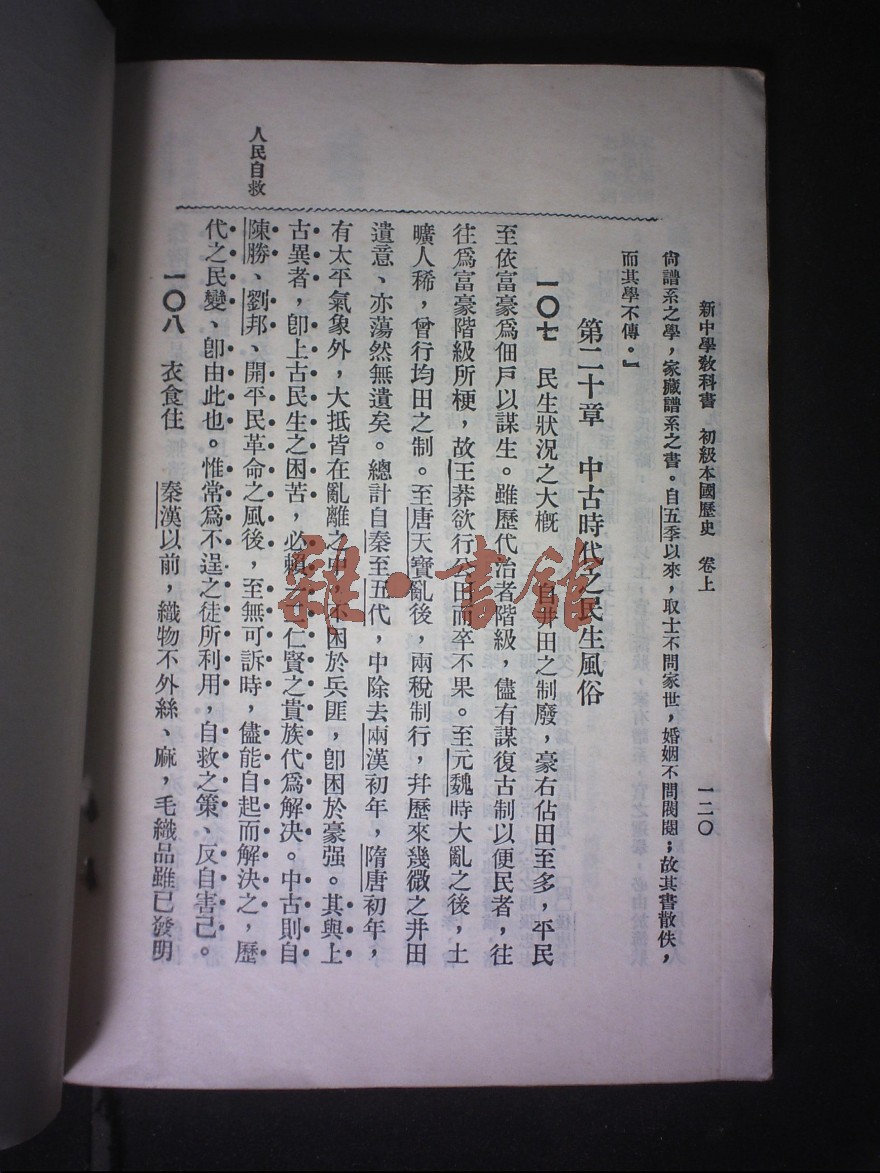 新中學教科書　初級本國歷史　卷上　一二〇
尙譜系之學，家藏譜系之書。自五季以來，取士不問家世，婚姻不問閥閱；故其書散佚，
而其學不傳。』
第二十章　中古時代之民生風俗
一〇七　民生狀況之大槪　自井田之制廢，豪右佔田至多，平民
至依富豪爲佃戶以謀生。雖歷代治者階級，儘有謀復古制以便民者，往
往爲富豪階級所梗，故王莽欲行公田而卒不果。至元魏時大亂之後，土
曠人稀，曾行均田之制。至唐天寶亂後，兩稅制行，幷歷來幾微之井田
遺意、亦蕩然無遺矣。總計自秦至五代，中除去兩漢初年，隋唐初年，
有太平氣象外，大抵皆在亂離之中，不困於兵匪，卽困於豪强。其與上
古異者，卽上古民生之困苦，必賴一二仁賢之貴族代爲解决。中古則自
陳勝、劉邦、開平民革命之風後，至無可訴時，儘能自起而解決之，歷
代之民變、卽由此也。惟常爲不逞之徒所利用，自救之策、反自害己。
人民自救
一〇八　衣食住　秦漢以前，織物不外絲、麻，毛織品雖已發明
雜·書館